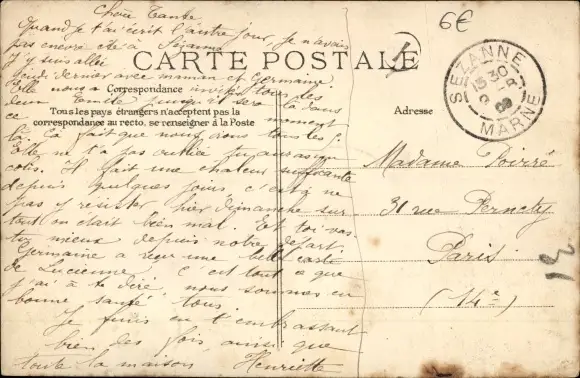 Chère Tante
Quand je t'ai écrit l'autre jour, je n'avais
pas encore été à Sézanne
j'y suis allée
Jeudi dernier avec maman et Germaine
Elle nous a invités tous les
deux Emile jusqu'il sera là dans
ce moment
là ça fait que nous irons tous les
Elle ne t'a pas oubliée tu auras un
colis. Il fait une chaleur suffocante
depuis quelques jours c'est à ne
pas y résister hier dimanche sur-
tout on était bien mal. Et toi vas-
tu mieux depuis notre départ.
Germaine a reçu une belle carte
de Lucienne c'est tout ce que
j'ai à te dire nous sommes en
bonne santé tous
Je finis en t'embrassant
bien des fois ainsi que
toute la maison Henriette
CARTE POSTALE
Correspondance
Tous les pays étrangers n'acceptent pas la
correspondance au recto, se renseigner à la Poste
Adresse
6€
SEZANNE
15 30
MARNE
Madame Poirré
31 rue Pernety
Paris
(14e)
12